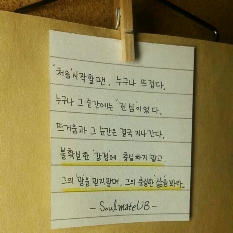 '처음' 시작할 땐, 누구나 뜨겁다.
누구나 그 순간에는 '진심'이었다.
뜨거움과 그 순간은 결국 지나간다.
불확실한 '감정'에 중심하지 말고
그의 '말'을 믿지말며, 그의 충실한 '삶'을 봐라.
- SoulmateUB -